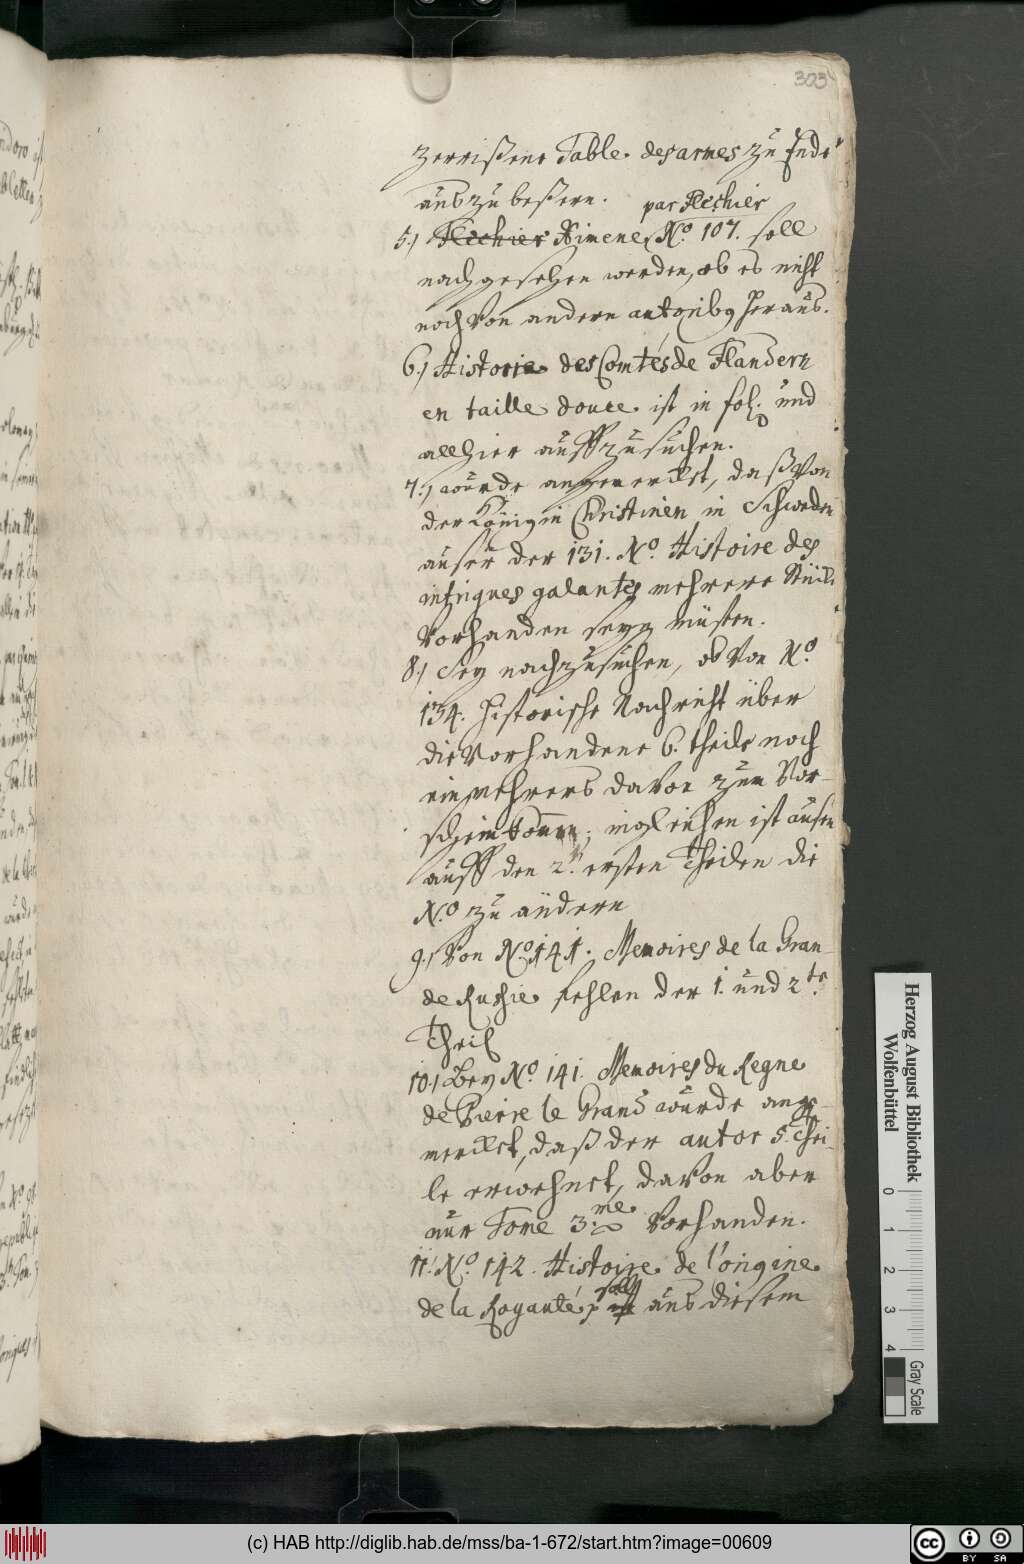 303
zerrißene Table des armes zu Ende
auszubeßern. par Flechier
5.) Flechier Ximene, No. 107. soll
nachgesehen werden, ob es nicht
noch von andern autoribus heraus.
6.) Historie des Comtes de Flandern
en taille douce ist in fol. und
allhier auffzusuchen.
7.) wurde angemerckt, daß von
der Königin Christinen in Schweden
außer der 131. No. Histoire des
intrigues galantes mehrere Stück
vorhanden seyn müsten.
8.) Sey nachzusuchen, ob von No.
134. Historische Nachricht über
die vorhandene 6. theile noch
ein mehrers davon zum Vor-
schein komen, ingleichen ist ausen
auff den 2. ersten Theilen die
No. zu ändern
9.) Von No. 141. Memoires de la Gran-
de Russie fehlen der 1. und 2te.
Theil
10.) Bey No. 141. Memoires du Regne
de Pierre le Grand wurde ange-
merckt, daß der autor 5. Thei-
le erwehnet, davon aber
nur Tome 3.me vorhanden.
11. No. 142. Histoire de l'origine
de la Royauté, soll aus diesem
Herzog August Bibliothek
Wolfenbüttel
0 1 2 3 4
Gray Scale
(c) HAB http://diglib.hab.de/mss/ba-1-672/start.htm?image=00609
cc BY SA